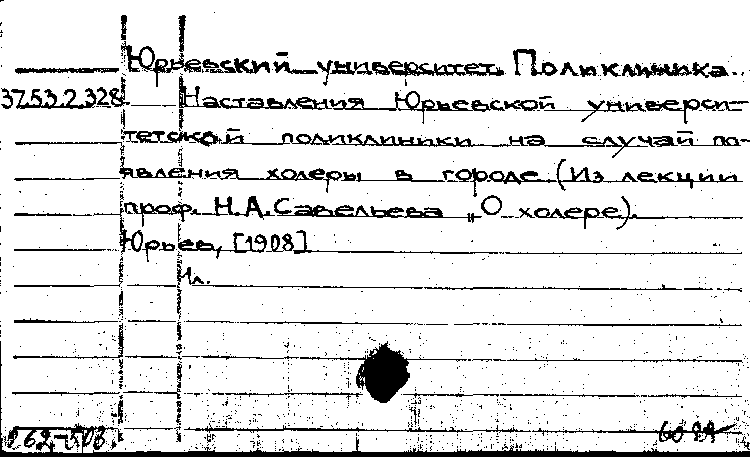 Юрьевский университет. Поликлиника.
37.53.2.328. Наставления Юрьевской универси-
тетской поликлиники на случай по-
явления холеры в городе. (Из лекции
проф. Н.А.Савельева „О холере).
Юрьев, [1908]
1л.